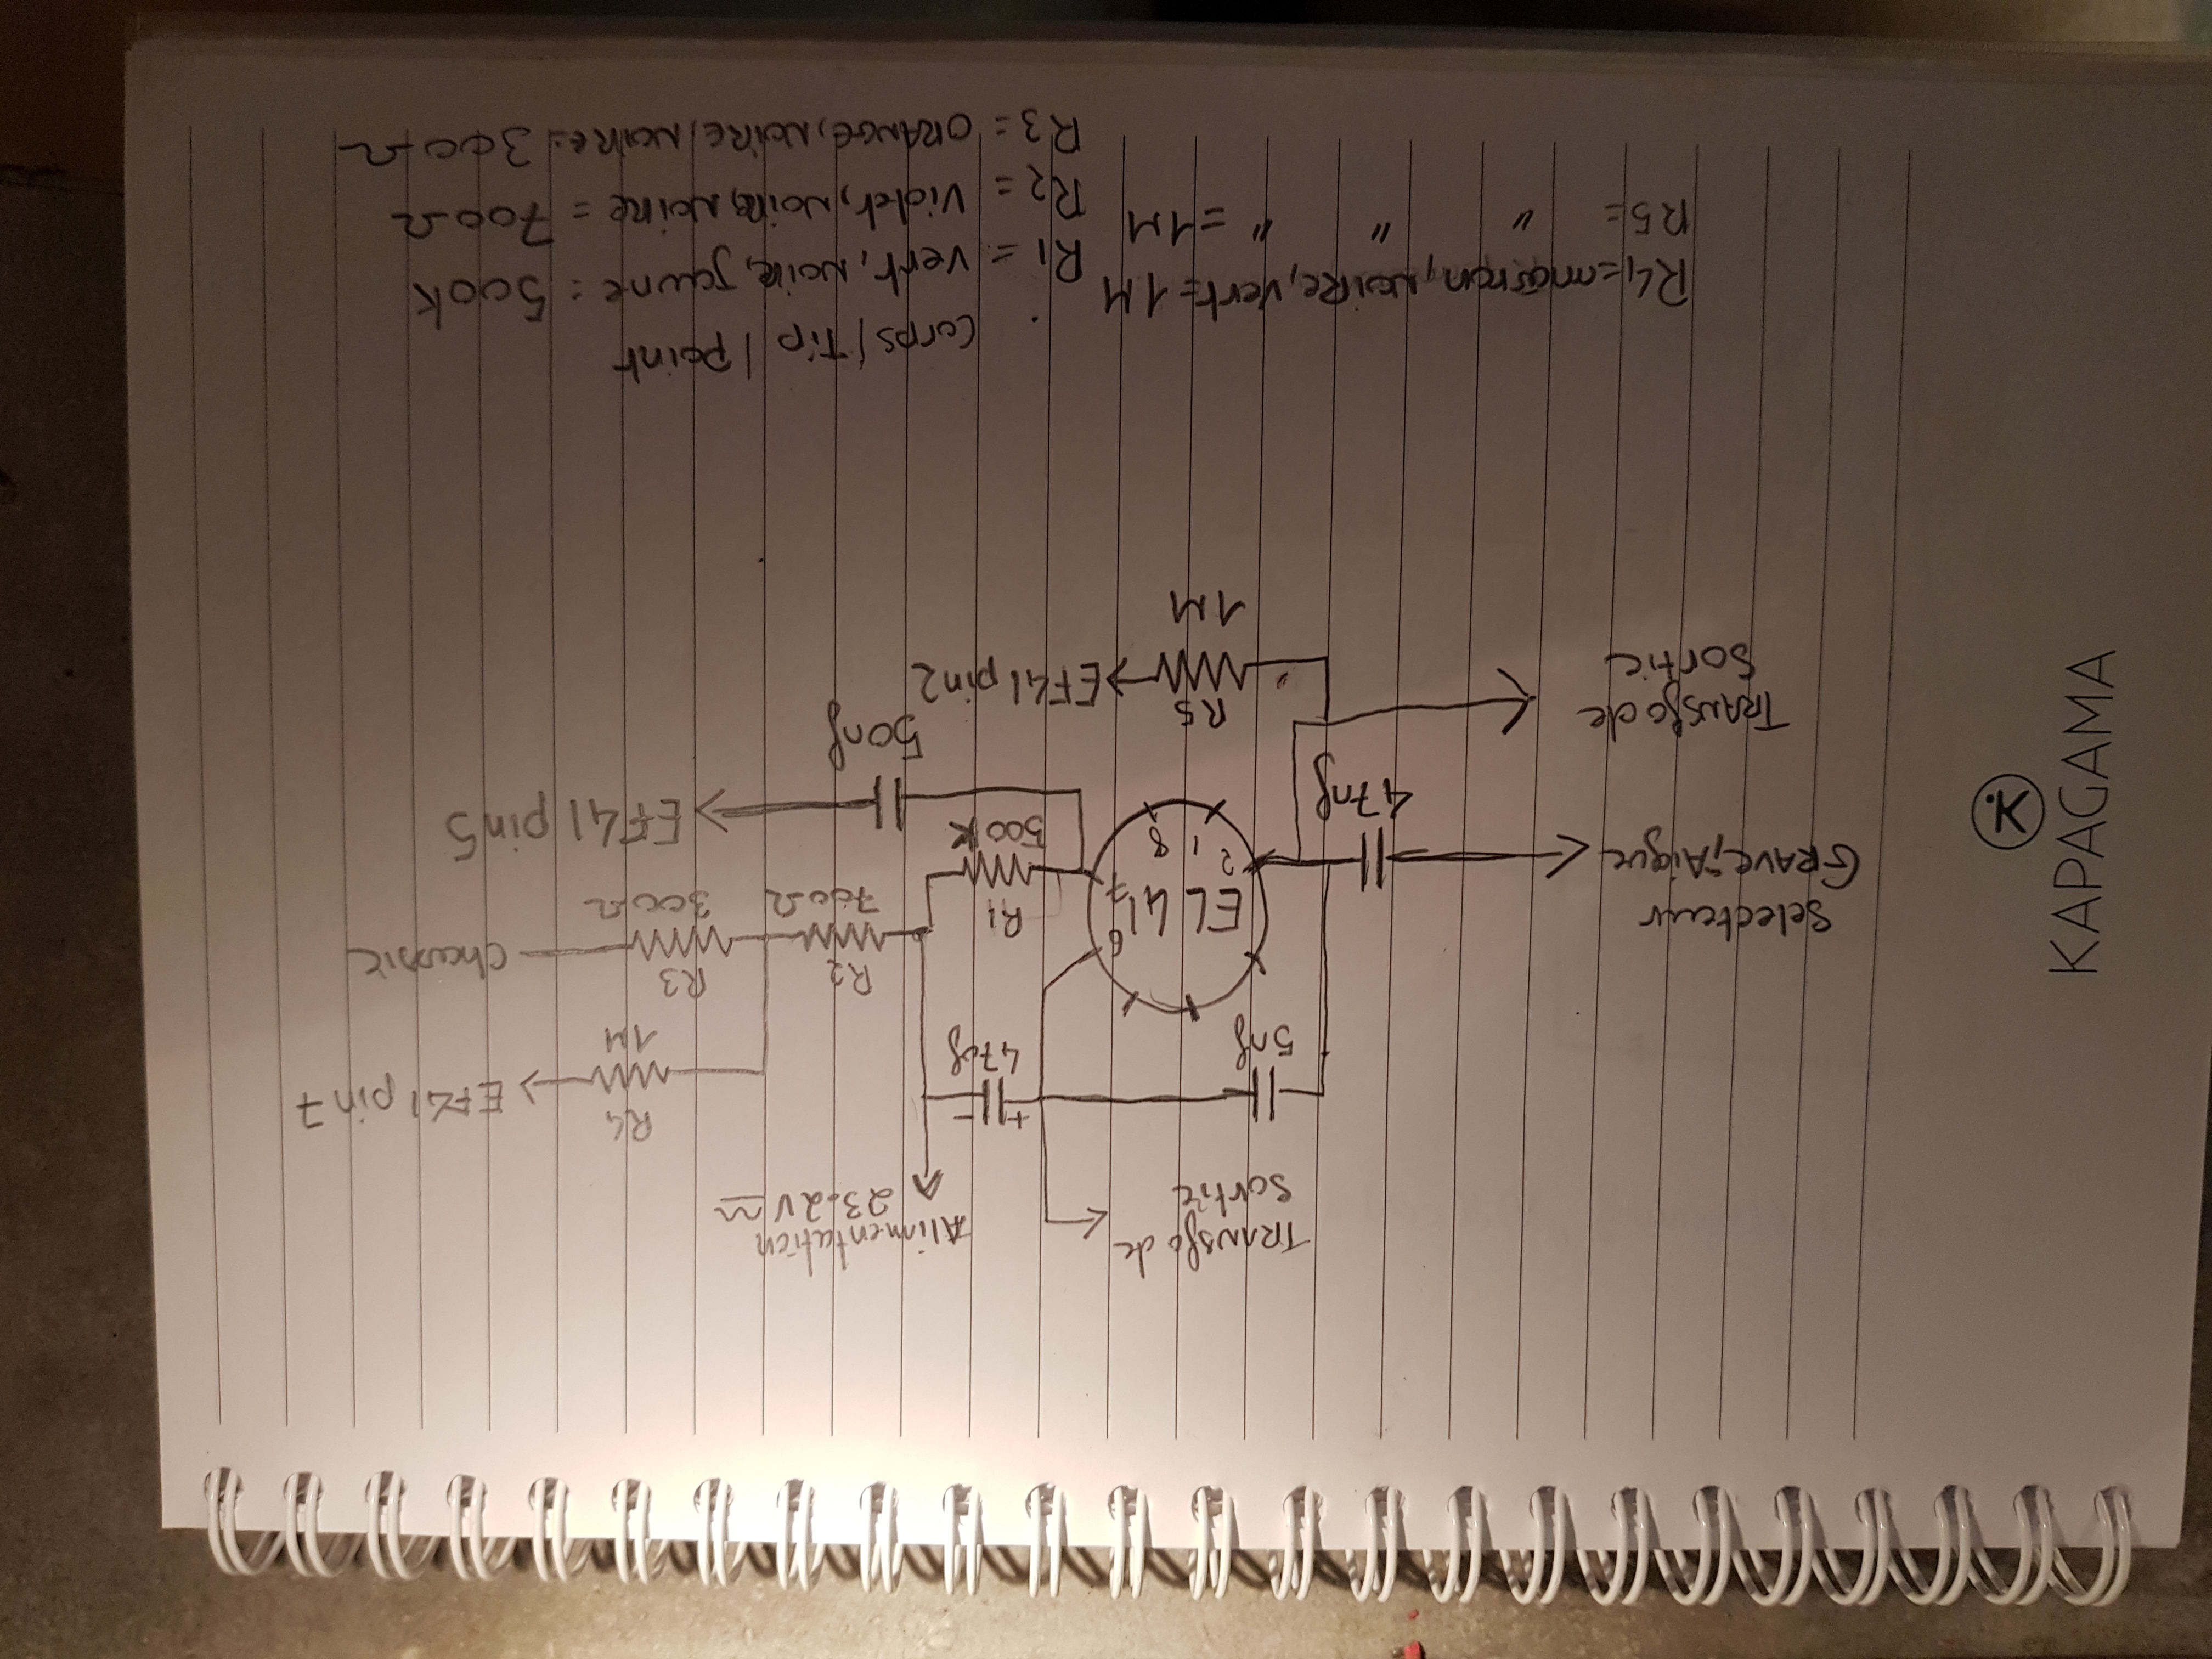 TRANSfo de
Sortie
Alimentation
23.2V
+
-
5nf
47uf
R4
1M
EF41 pin7
R2
700Ω
R3
300Ω
Chassie
Selecteur
GRAVE,Aigue
EL41
6
7
8
1
2
R1
500K
EF41 pin5
47nf
50nf
TRANSfo de
Sortie
R5
1M
EF41 pin2
Corps / Tip / Point
R1 = Vert, Noire, Jaune = 500K
R2 = Violet, Noire, Noire = 700Ω
R3 = ORANGE, NOIRE, NOIRE = 300Ω
R4 = marron, NOIRE, Vert = 1M
R5 = " " " = 1M
K
KAPAGAMA